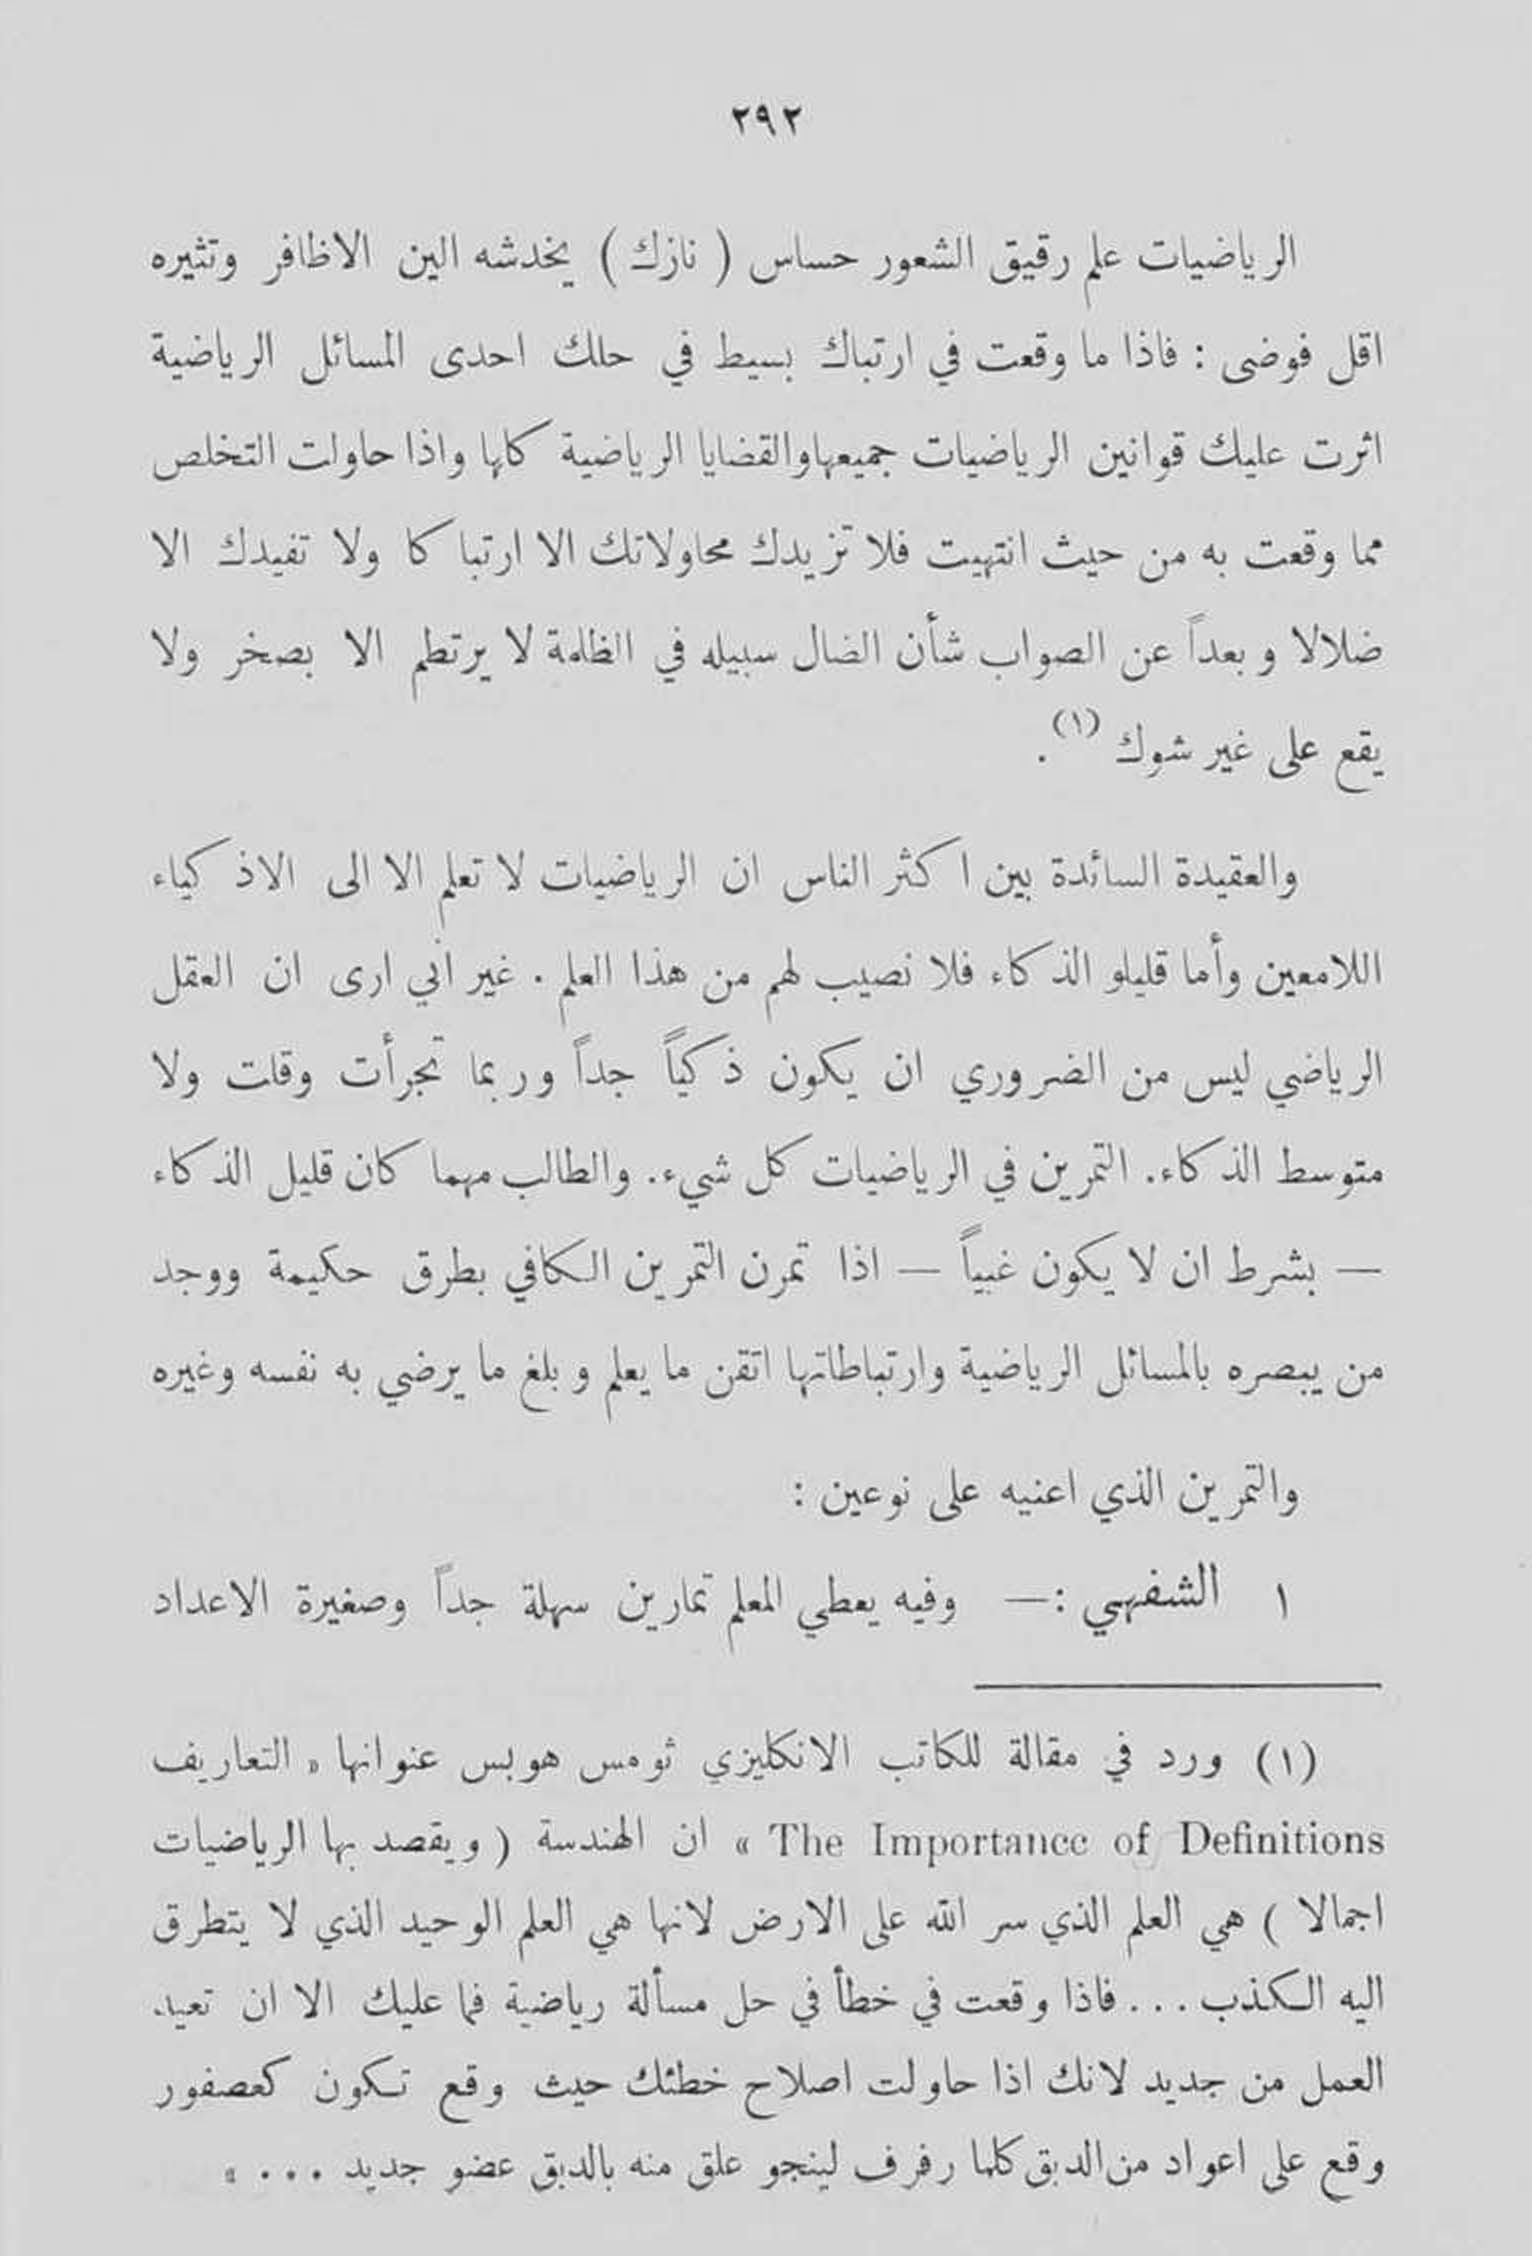 ٢٩٢
الرياضيات علم رقيق الشعور حساس ( نازك ) يخدشه الين الاظافر وتثيره
اقل فوضى : فاذا ما وقعت في ارتباك بسيط في حلك احدى المسائل الرياضية
اثرت عليك قوانين الرياضيات جميعها والقضايا الرياضية كلها واذا حاولت التخلص
مما وقعت به من حيث انتهيت فلا تزيدك محاولاتك الا ارتباكا ولا تفيدك الا
ضلالا وبعداً عن الصواب شأن الضال سبيله في الظلمة لا يرتطم الا بصخر ولا
يقع على غير شوك (١).
والعقيدة السائدة بين اكثر الناس ان الرياضيات لا تعلم الا الى الاذكياء
اللامعين وأما قليلو الذكاء فلا نصيب لهم من هذا العلم . غير أني ارى ان العقل
الرياضي ليس من الضروري ان يكون ذكياً جداً وربما تجرأت وقلت ولا
متوسط الذكاء. التمرين في الرياضيات كل شيء. والطالب مهما كان قليل الذكاء
— بشرط ان لا يكون غبياً — اذا تمرن التمرين الكافي بطرق حكيمة ووجد
من يبصره بالمسائل الرياضية وارتباطاتها اتقن ما يعلم وبلغ ما يرضي به نفسه وغيره
والتمرين الذي اعنيه على نوعين :
١ الشفهي :— وفيه يعطي المعلم تمارين سهلة جداً وصغيرة الاعداد
(١) ورد في مقالة للكاتب الانكليزي ثومس هوبس عنوانها « التعاريف
The Importance of Definitions » ان الهندسة ( ويقصد بها الرياضيات
اجمالا ) هي العلم الذي سر الله على الارض لانها هي العلم الوحيد الذي لا يتطرق
اليه الكذب ... فاذا وقعت في خطأ في حل مسألة رياضية فما عليك الا ان تعيد
العمل من جديد لانك اذا حاولت اصلاح خطئك حيث وقع تكون كعصفور
وقع على اعواد من الدبق كلما رفرف لينجو علق منه بالدبق عضو جديد ... »